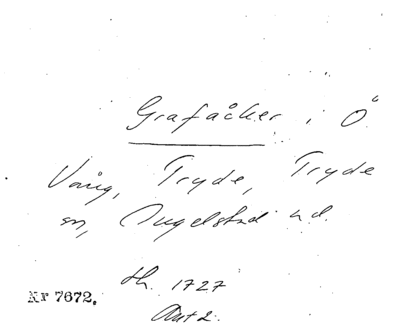 Grafåcker i Ö
Vång, Tryde, Tryde
sn, Ingelstad hd.
th. 1727
Akt 2.
Nr 7672.